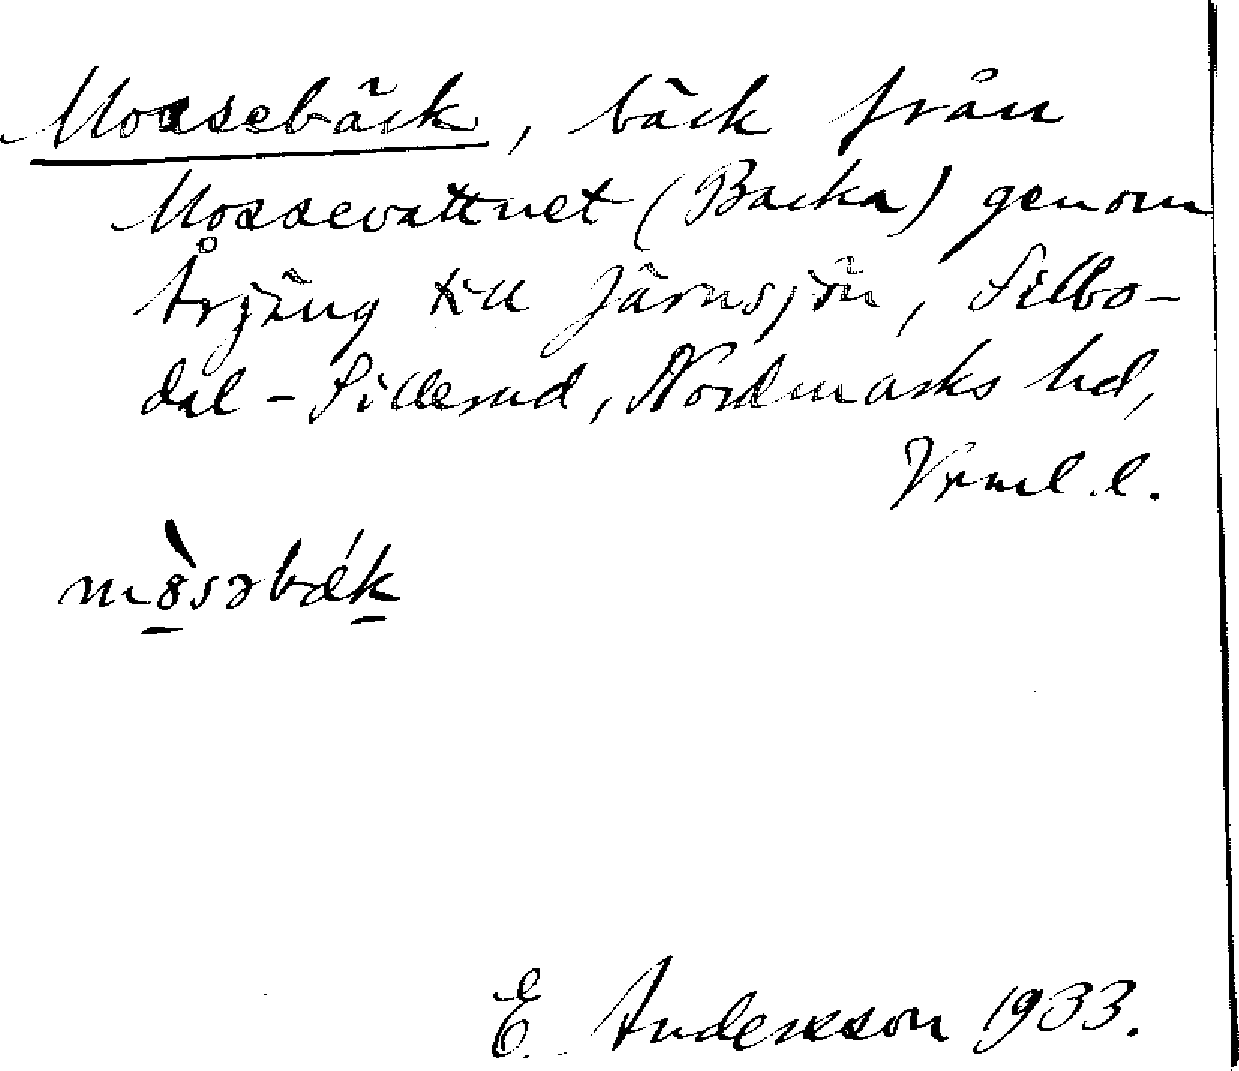 Mossebäck, bäck från
Mossevattnet (Backa) genom
Årjäng till Järnsjön, Silbo-
dal - Sillerud, Nordmarks hd,
Vrml. l.
mòsəbǽk
E. Andersson 1933.